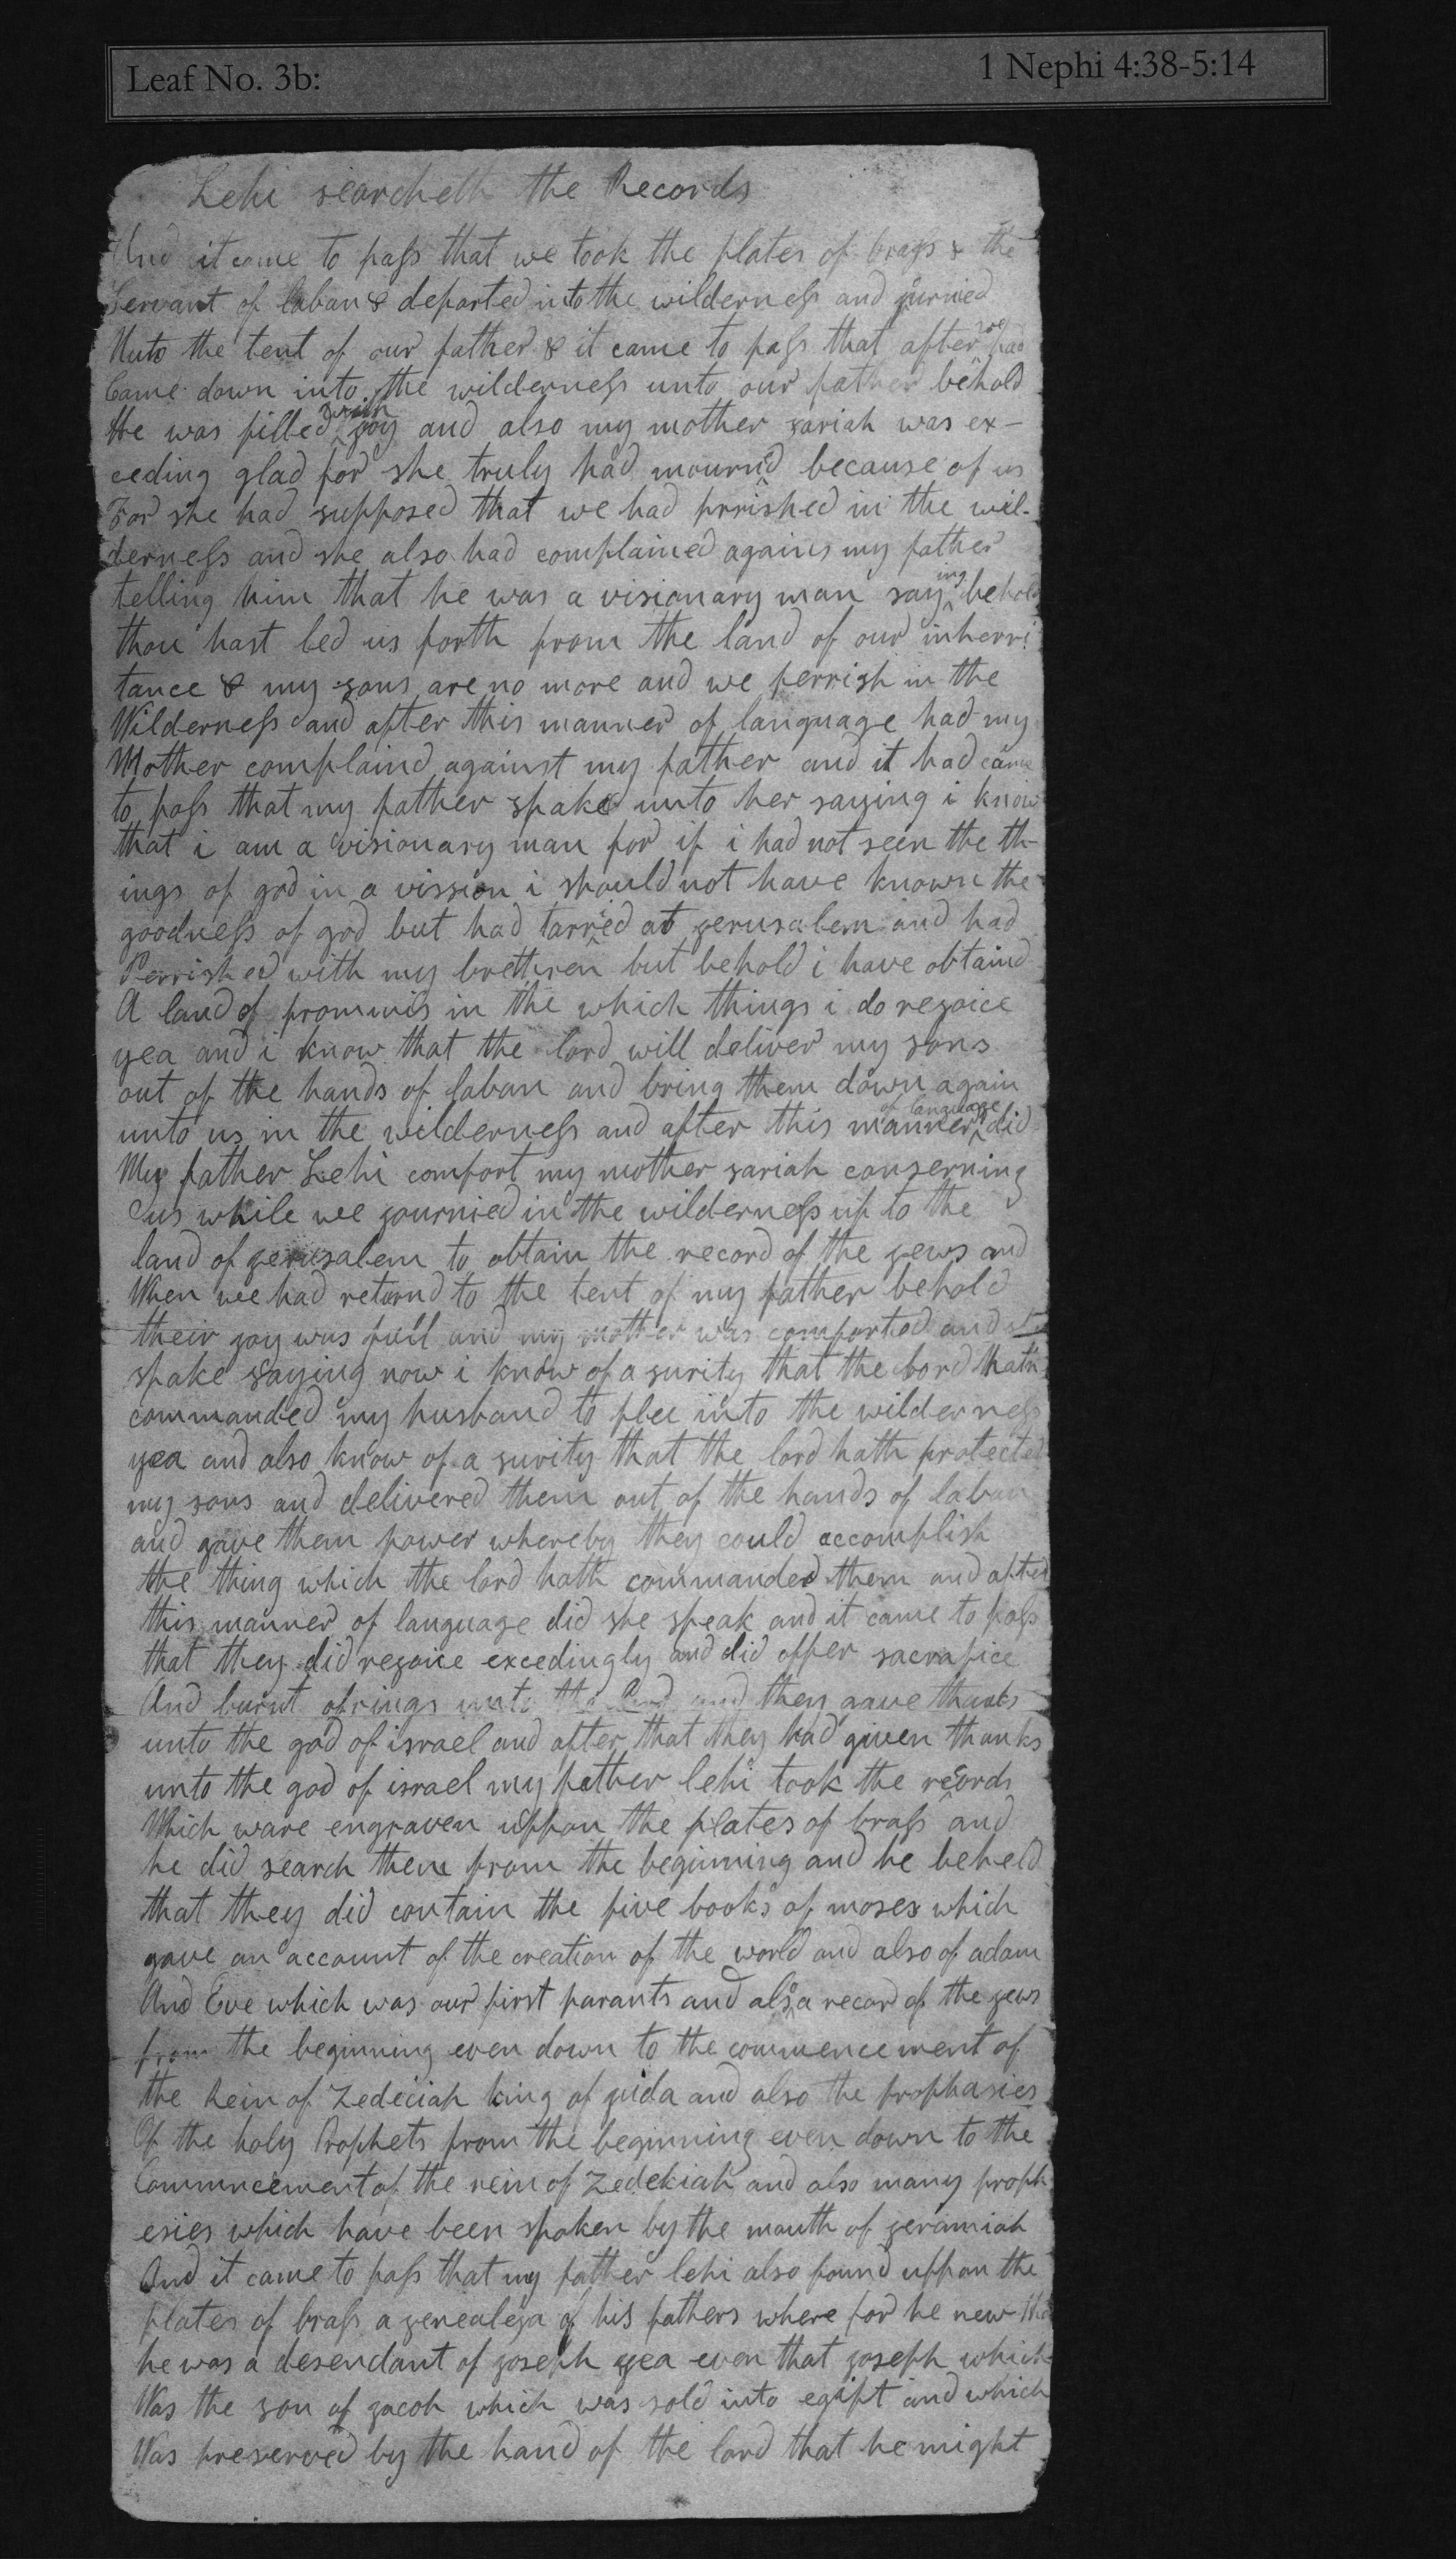 Leaf No. 3b: 1 Nephi 4:38-5:14
Lehi searcheth the Records
And it came to pass that we took the plates of brass & the
Servant of laban & departed into the wilderness and jurnied
Unto the tent of our father & it came to pass that after we had
Came down into the wilderness unto our father behold
He was filled with joy and also my mother sariah was ex-
ceeding glad for she truly had mournd because of us
For she had supposed that we had prrished in the wil-
derness and she also had complained agains my father
telling him that he was a visionary man saying behold
thou hast led us forth from the land of our inherri
tance & my sons are no more and we perrish in the
Wilderness and after this manner of language had my
Mother complaind against my father and it had came
to pass that my father spake unto her saying i know
that i am a visionary man for if i had not seen the th-
ings of god in a vission i should not have known the
goodness of god but had tarried at jerusalem and had
Perrished with my brethren but behold i have obtaind
A land of prommis in the which things i do rejoice
yea and i know that the lord will deliver my sons
out of the hands of laban and bring them down again
unto us in the wilderness and after this manner of language did
My father Lehi comfort my mother sariah conserning
us while wee journied in the wilderness up to the
land of jerusalem to obtain the record of the jews and
When wee had returnd to the tent of my father behold
their joy was full and my mother was comforted and she
spake saying now i know of a surity that the lord hath
commanded my husband to flee into the wilderness
yea and also know of a surity that the lord hath protected
my sons and delivered them out of the hands of laban
and gave them power whereby they could accomplish
the thing which the lord hath commanded them and after
this manner of language did she speak and it came to pass
that they did rejoice excedingly and did offer sacrafice
And burnt ofrings unto the lord and they gave thanks
unto the god of israel and after that they had given thanks
unto the god of israel my father lehi took the records
Which ware engraven uppon the plates of brass and
he did search them from the beginning and he beheld
that they did contain the five books of moses which
gave an account of the creation of the world and also of adam
And Eve which was our first parants and also a recor of the jews
from the beginning even down to the commencement of
the Rein of Zedeciah king of juda and also the prophasies
Of the holy Prophets from the beginning even down to the
Commncement of the rein of Zedekiah and also many proph
esies which have been spoken by the mouth of jeramiah
And it came to pass that my father lehi also found uppon the
plates of brass a genealeja of his fathers where for he new that
he was a desendant of joseph yea even that joseph which
Was the son of jacob which was sold into egipt and which
Was preserved by the hand of the lord that he might